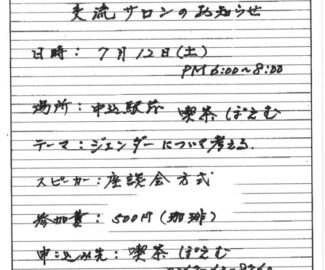 交流サロンのお知らせ
日時：7月12日(土)
PM 6:00〜8:00
場所：申込駅前 喫茶 ぽえむ
テーマ：ジェンダーについて考える
スピーカー：座談会方式
参加費：500円(珈琲)
申し込み先：喫茶 ぽえむ